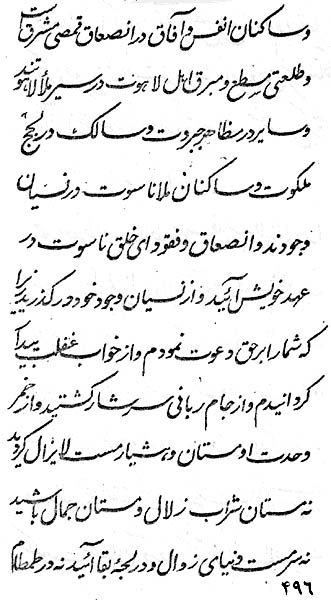 وساکنان انفس و آفاق در انصعاق قمصی مشرق است
وطلعتی مسطع و مبرق اهل لاهوت در سیر ملأ لاهوتند
وسایر در مظاهر جبروت وسالک در لجج
ملکوت وساکنان ملأ ناسوت در نسیان
وجودند و انصعاق وفقود ای خلق ناسوت در
عهد خویش آئید و از نسیان وجود خود در گذرید زیرا
که شما را بر حق دعوت نمودم و از خواب غفلت بیدار
گردانیدم و از جام ربانی سرشار گشتید و از خمر
وحدت او مستان و هشیار مست لایزال گردید
نه مستان شراب زلال و مستان جمال باشید
نه سرمست دنیای زوال و در لجهٔ بقا آئید نه در طمطام
۴۹۶